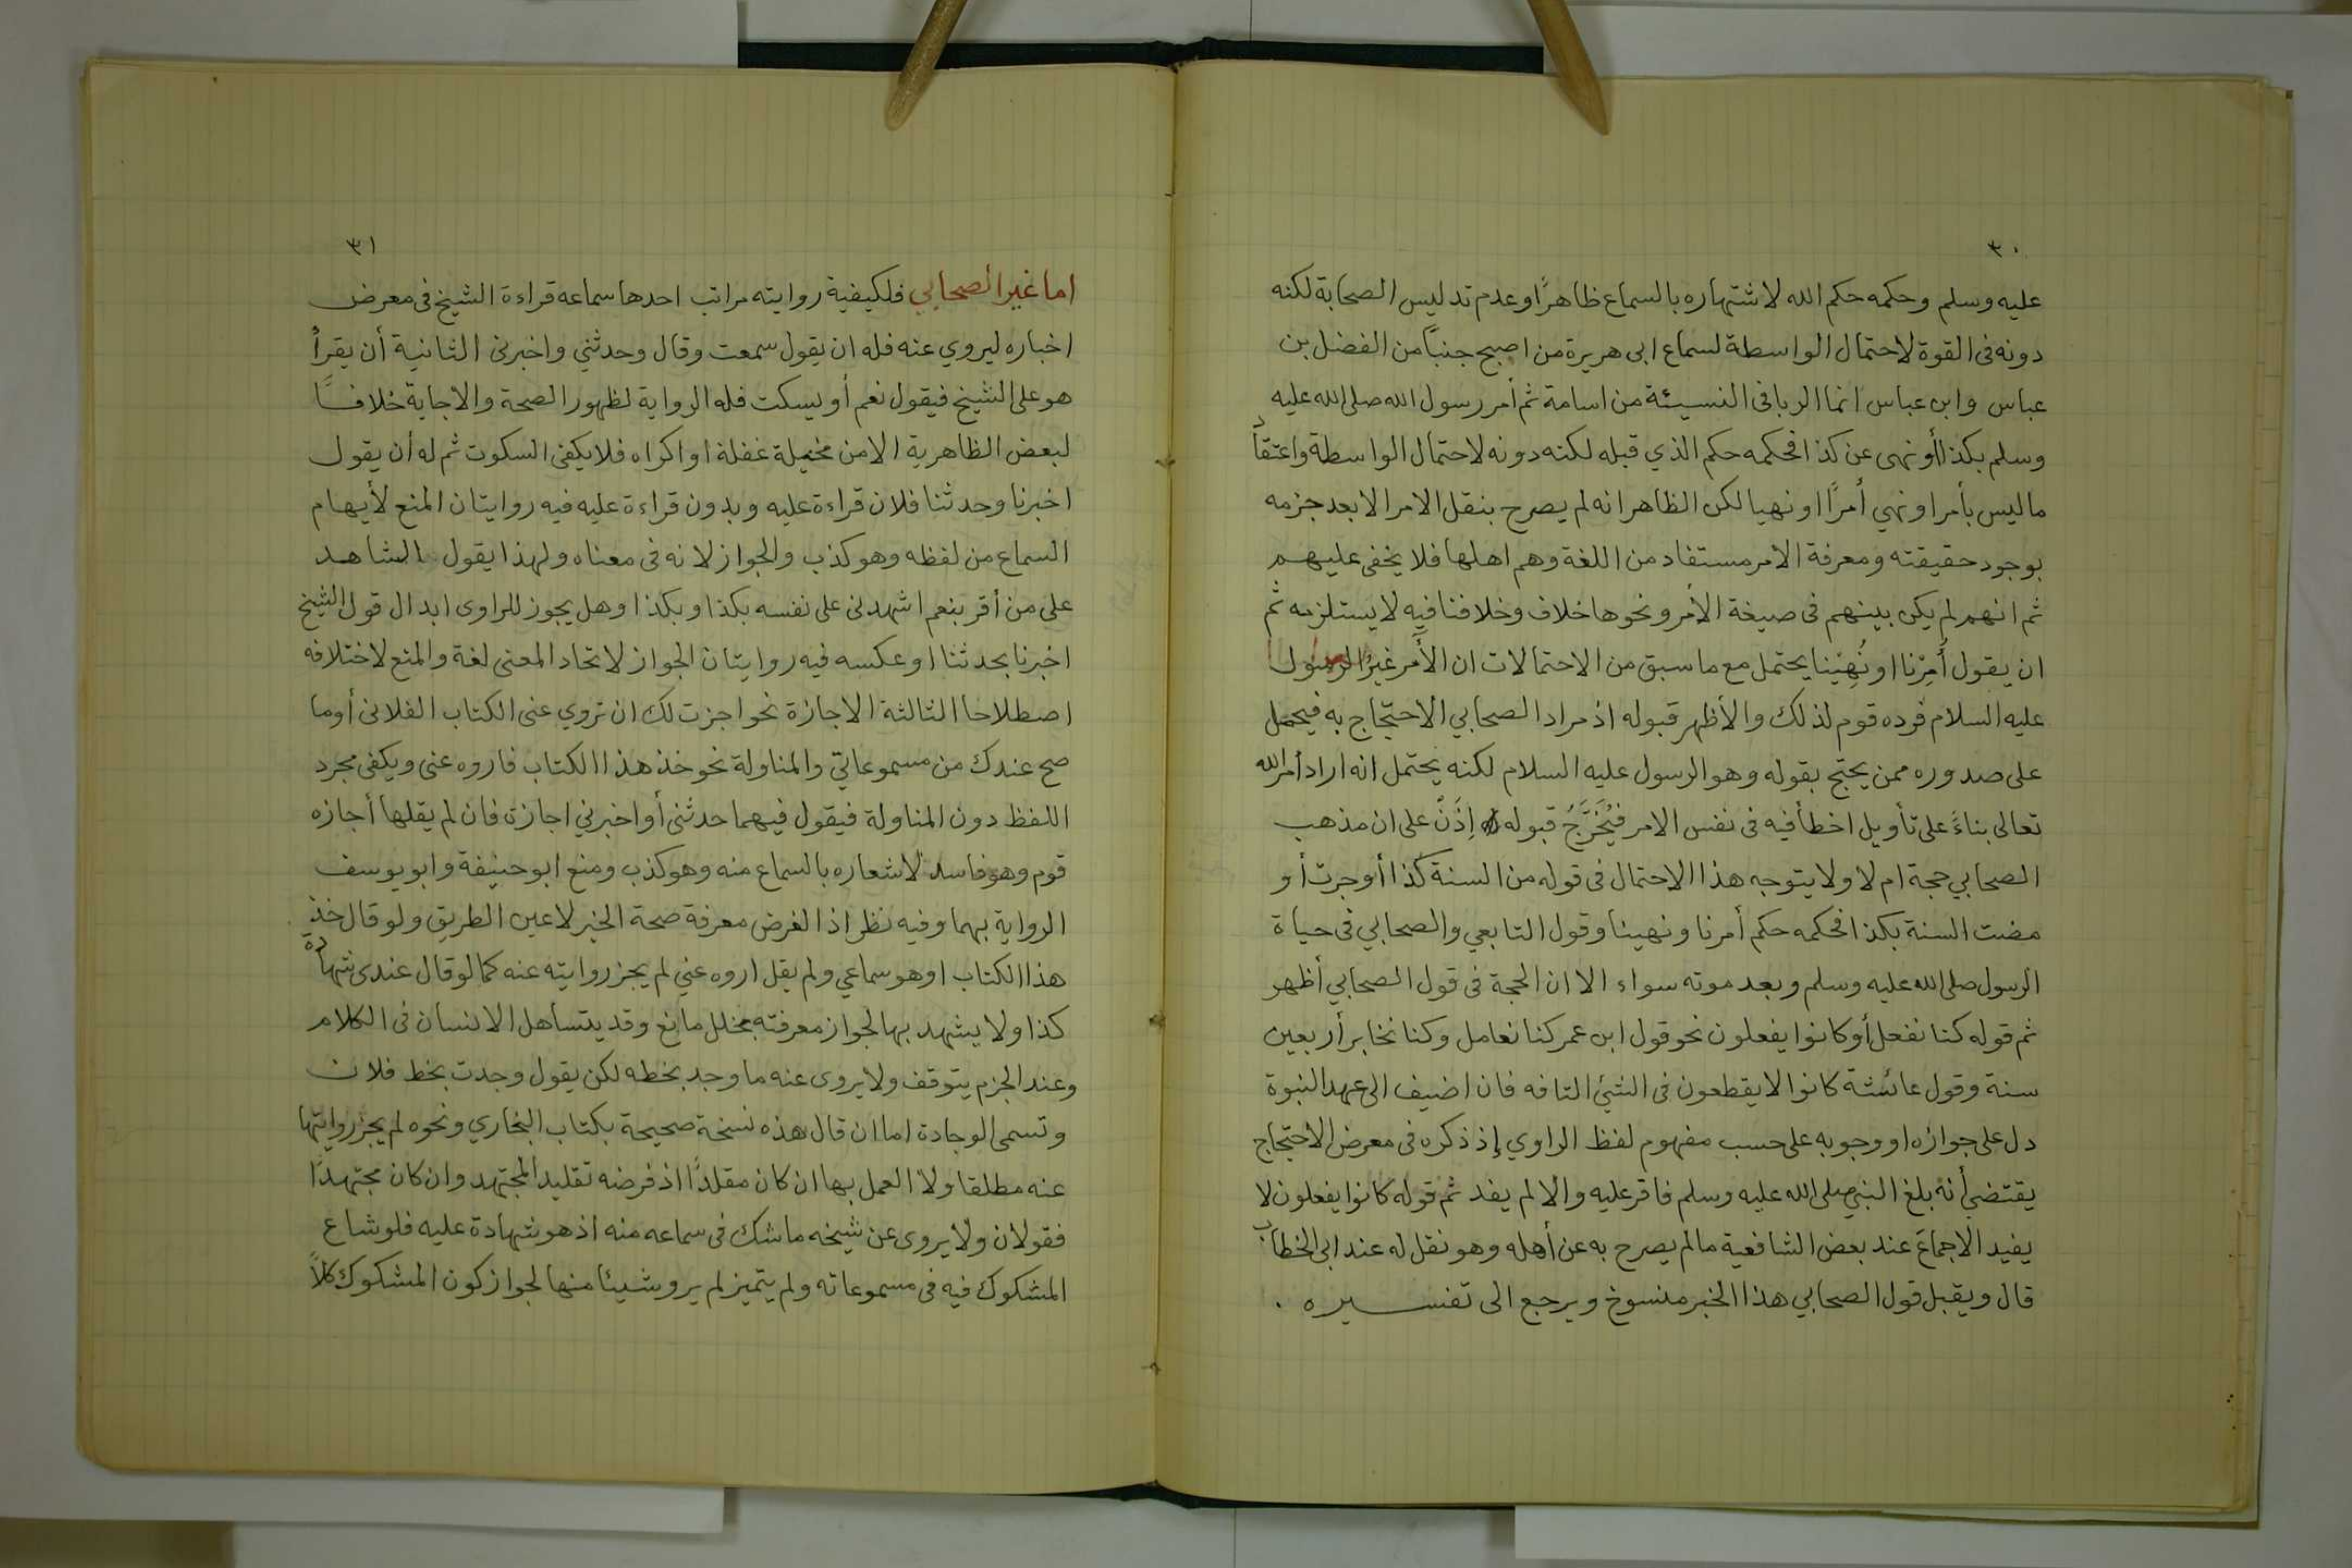 ٣٠
عليه وسلم وحكمه حكم الله لاشتهاره بالسماع ظاهرًا وعدم تدليس الصحابة لكنه
دونه فى القوة لاحتمال الواسطة لسماع ابى هريرة من اصبح جنبًا من الفضل بن
عباس وابن عباس انما الربا فى النسيئة من اسامة ثم أمر رسول الله صلى الله عليه
وسلم بكذا أو نهى عن كذا فحكمه حكم الذي قبله لكنه دونه لاحتمال الواسطة واعتقاد
ما ليس بأمر او نهي أمرًا او نهيا لكن الظاهر انه لم يصرح بنقل الامر الا بعد جزمه
بوجود حقيقته ومعرفة الامر مستفاد من اللغة وهم اهلها فلا يخفى عليهم
ثم انهم لم يكن بينهم فى صيغة الأمر ونحوها خلاف وخلافنا فيه لا يستلزمه ثم
ان يقول أُمِرْنا او نُهِيْنا يحتمل مع ما سبق من الاحتمالات ان الأَمر غيرُ الرسول
عليه السلام فرده قوم لذلك والأظهر قبوله اذ مراد الصحابي الاحتجاج به فيحمل
على صدوره ممن يحتج بقوله وهو الرسول عليه السلام لكنه يحتمل انه اراد أمر الله
تعالى بناءً على تأويل اخطأ فيه فى نفس الامر فيُخَرَّجُ قبوله إذَنْ على ان مذهب
الصحابي حجة ام لا ولا يتوجه هذا الاحتمال فى قوله من السنة كذا أو جرت أو
مضت السنة بكذا فحكمه حكم أمرنا ونهينا وقول التابعي والصحابي فى حياة
الرسول صلى الله عليه وسلم وبعد موته سواء الا ان الحجة فى قول الصحابي أظهر
ثم قوله كنا نفعل أو كانوا يفعلون نحو قول ابن عمر كنا نعامل وكنا نخابر أربعين
سنة وقول عائشة كانوا لا يقطعون فى الشئ التافه فان اضيف الى عهد النبوة
دل على جوازه او وجوبه على حسب مفهوم لفظ الراوي إذ ذكره فى معرض الاحتجاج
يقتضي أنه بلغ النبي صلى الله عليه وسلم فاقر عليه والا لم يفد ثم قوله كانوا يفعلون لا
يفيد الاجماعَ عند بعض الشافعية ما لم يصرح به عن أهله وهو نقل له عند ابى الخطاب
قال ويقبل قول الصحابي هذا الخبر منسوخ ويرجع الى تفسيره .
٣١
اما غير الصحابي فلكيفية روايته مراتب احدها سماعه قراءة الشيخ فى معرض
اخباره ليروي عنه فله ان يقول سمعت وقال وحدثني واخبرنى الثانية أن يقرأ
هو على الشيخ فيقول نعم أو يسكت فله الرواية لظهور الصحة والاجابة خلافًا
لبعض الظاهرية الا من مخيلة غفلة او اكراه فلا يكفى السكوت ثم له أن يقول
اخبرنا وحدثنا فلان قراءة عليه وبدون قراءة عليه فيه روايتان المنع لأيهام
السماع من لفظه وهو كذب والجواز لانه فى معناه ولهذا يقول الشاهد
على من أقر بنعم اشهدنى على نفسه بكذا وبكذا وهل يجوز للراوى ابدال قول الشيخ
اخبرنا بحدثنا او عكسه فيه روايتان الجواز لاتحاد المعنى لغة والمنع لاختلافه
اصطلاحا الثالثة الاجازة نحو اجزت لك ان تروي عنى الكتاب الفلانى أو ما
صح عندك من مسموعاتي والمناولة نحو خذ هذا الكتاب فاروه عنى ويكفى مجرد
اللفظ دون المناولة فيقول فيهما حدثنى أو اخبرني اجازة فان لم يقلها أجازه
قوم وهو فاسد لاشعاره بالسماع منه وهو كذب ومنع ابو حنيفة وابو يوسف
الرواية بهما وفيه نظر اذ الغرض معرفة صحة الخبر لا عين الطريق ولو قال خذ
هذا الكتاب او هو سماعي ولم يقل اروه عني لم يجز روايته عنه كما لو قال عندى شهادة
كذا ولا يشهد بها لجواز معرفته بخلل مانع وقد يتساهل الانسان فى الكلام
وعند الجزم يتوقف ولا يروى عنه ما وجد بخطه لكن يقول وجدت بخط فلان
وتسمى الوجادة اما ان قال هذه نسخة صحيحة بكتاب البخاري ونحوه لم يجز روايتها
عنه مطلقا ولا العمل بها ان كان مقلدًا اذ فرضه تقليد المجتهد وان كان مجتهدًا
فقولان ولا يروى عن شيخه ما شك فى سماعه منه اذ هو شهادة عليه فلو شاع
المشكوك فيه فى مسموعاته ولم يتميز لم يرو شيئا منها لجواز كون المشكوك كلاً